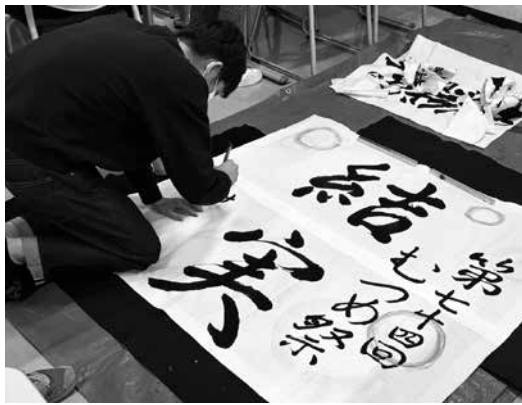 第七十四回
むつめ祭
結実